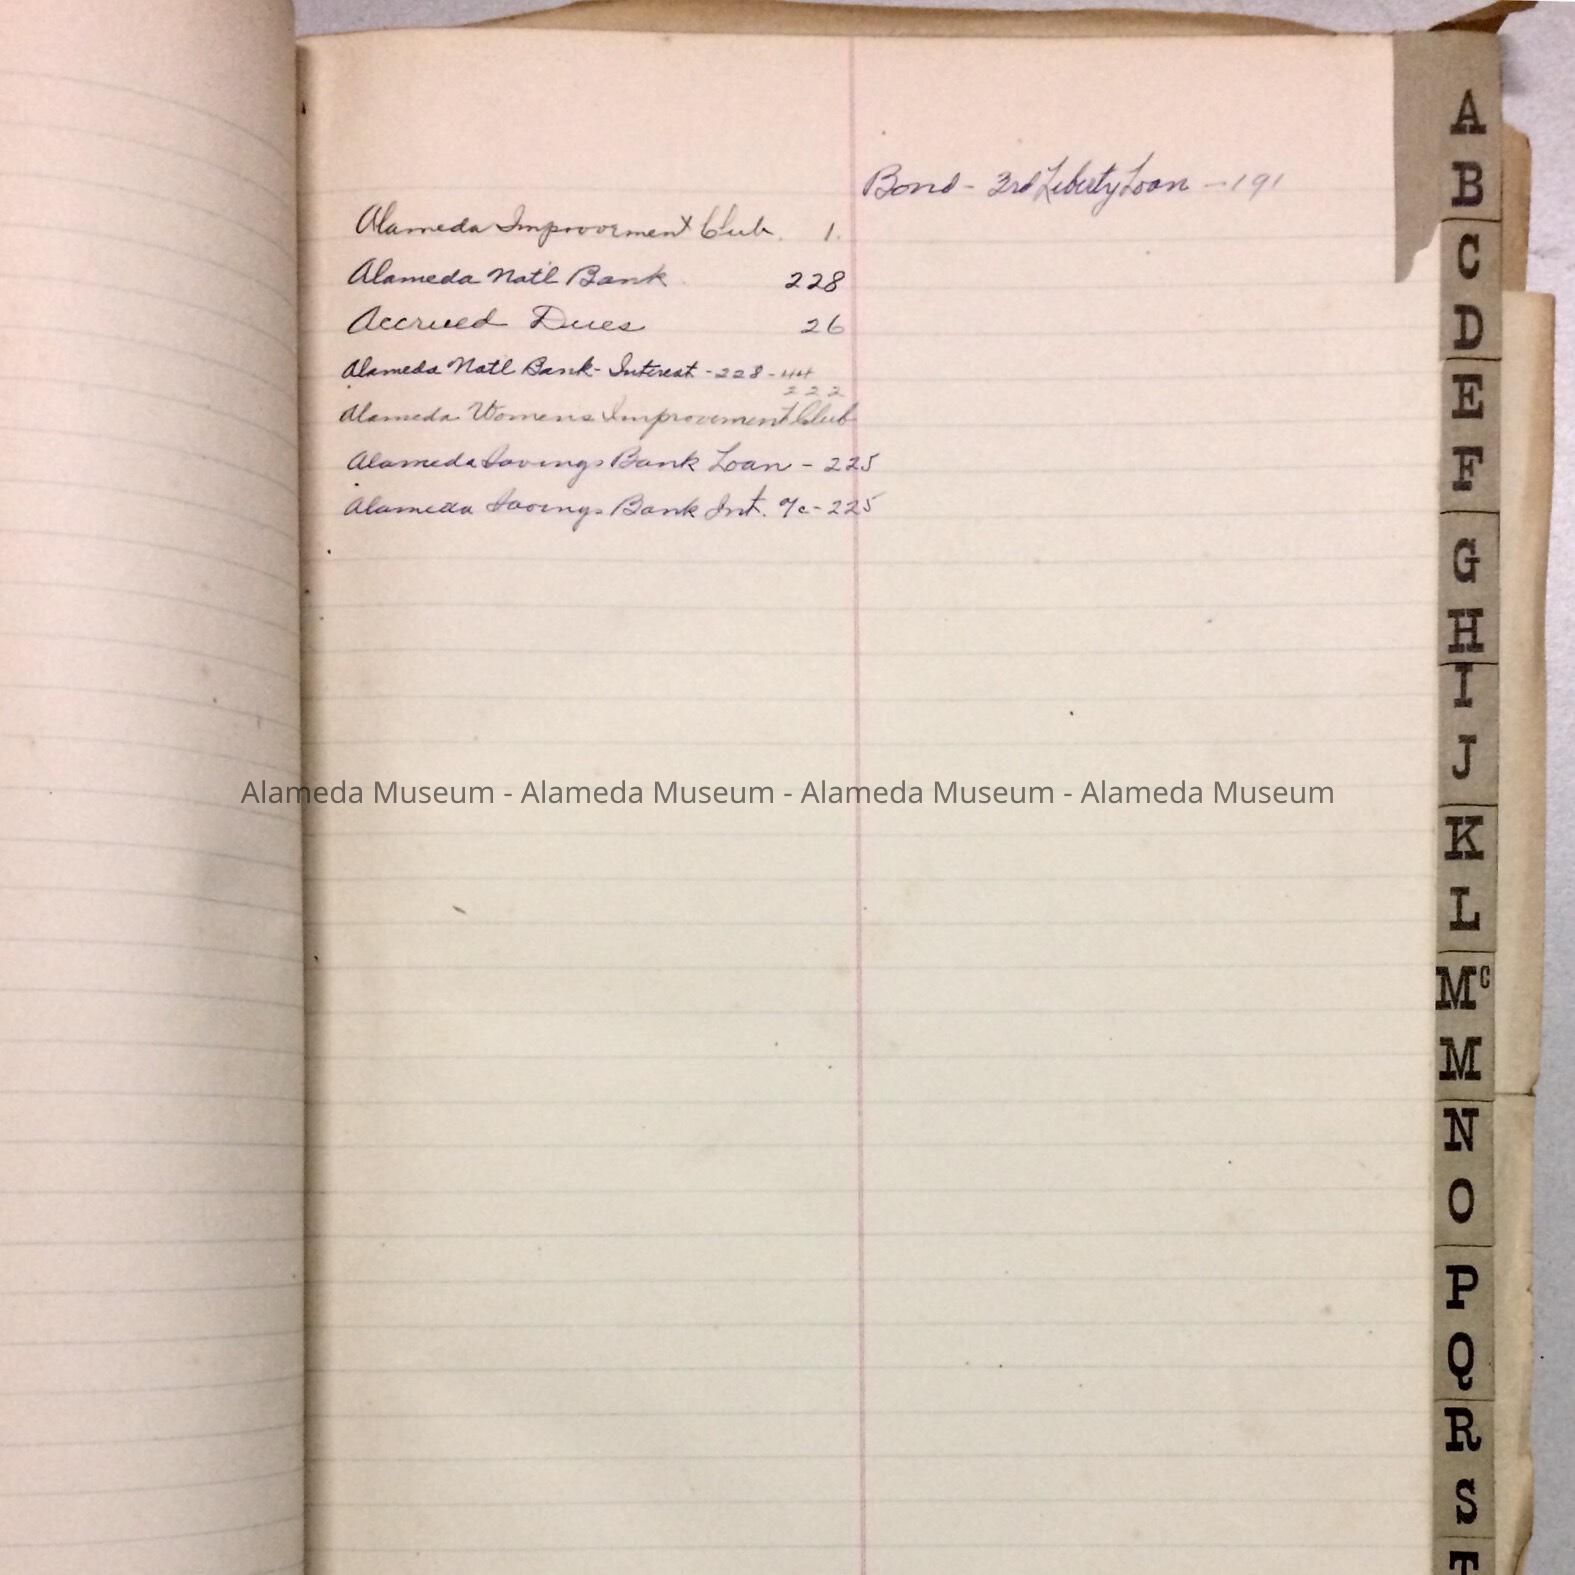 Bond - 3rd Liberty Loan - 191
Alameda Improvement Club. 1.
Alameda Nat'l Bank 228
Accrued Dues 26
Alameda Natl Bank - Interest - 228 - 44
222
Alameda Womens Improvement Club
Alameda Savings Bank Loan - 225
Alameda Savings Bank Int. a/c - 225
Alameda Museum - Alameda Museum - Alameda Museum - Alameda Museum
A
B
C
D
E
F
G
H
I
J
K
L
Mc
M
N
O
P
Q
R
S
T